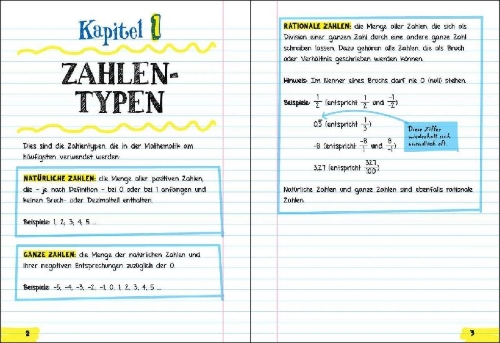 Kapitel 1
ZAHLEN-
TYPEN
Dies sind die Zahlentypen, die in der Mathematik am
häufigsten verwendet werden.
NATÜRLICHE ZAHLEN: die Menge aller positiven Zahlen,
die – je nach Definition – bei 0 oder bei 1 anfangen und
keinen Bruch- oder Dezimalteil enthalten.
Beispiele: 1, 2, 3, 4, 5 ...
GANZE ZAHLEN: die Menge der natürlichen Zahlen und
ihrer negativen Entsprechungen zuzüglich der 0.
Beispiele: -5, -4, -3, -2, -1, 0, 1, 2, 3, 4, 5 ...
2
RATIONALE ZAHLEN: die Menge aller Zahlen, die sich als
Division einer ganzen Zahl durch eine andere ganze Zahl
schreiben lassen. Dazu gehören alle Zahlen, die als Bruch
oder Verhältnis geschrieben werden können.
Hinweis: Im Nenner eines Bruchs darf nie 0 (null) stehen.
Beispiele: 1/2 (entspricht 1/2 und -1/-2)
0,3̅ (entspricht 1/3)
Diese Ziffer
wiederholt sich
unendlich oft.
-8 (entspricht -8/1 und 8/-1)
3,27 (entspricht 327/100)
Natürliche Zahlen und ganze Zahlen sind ebenfalls rationale
Zahlen.
3